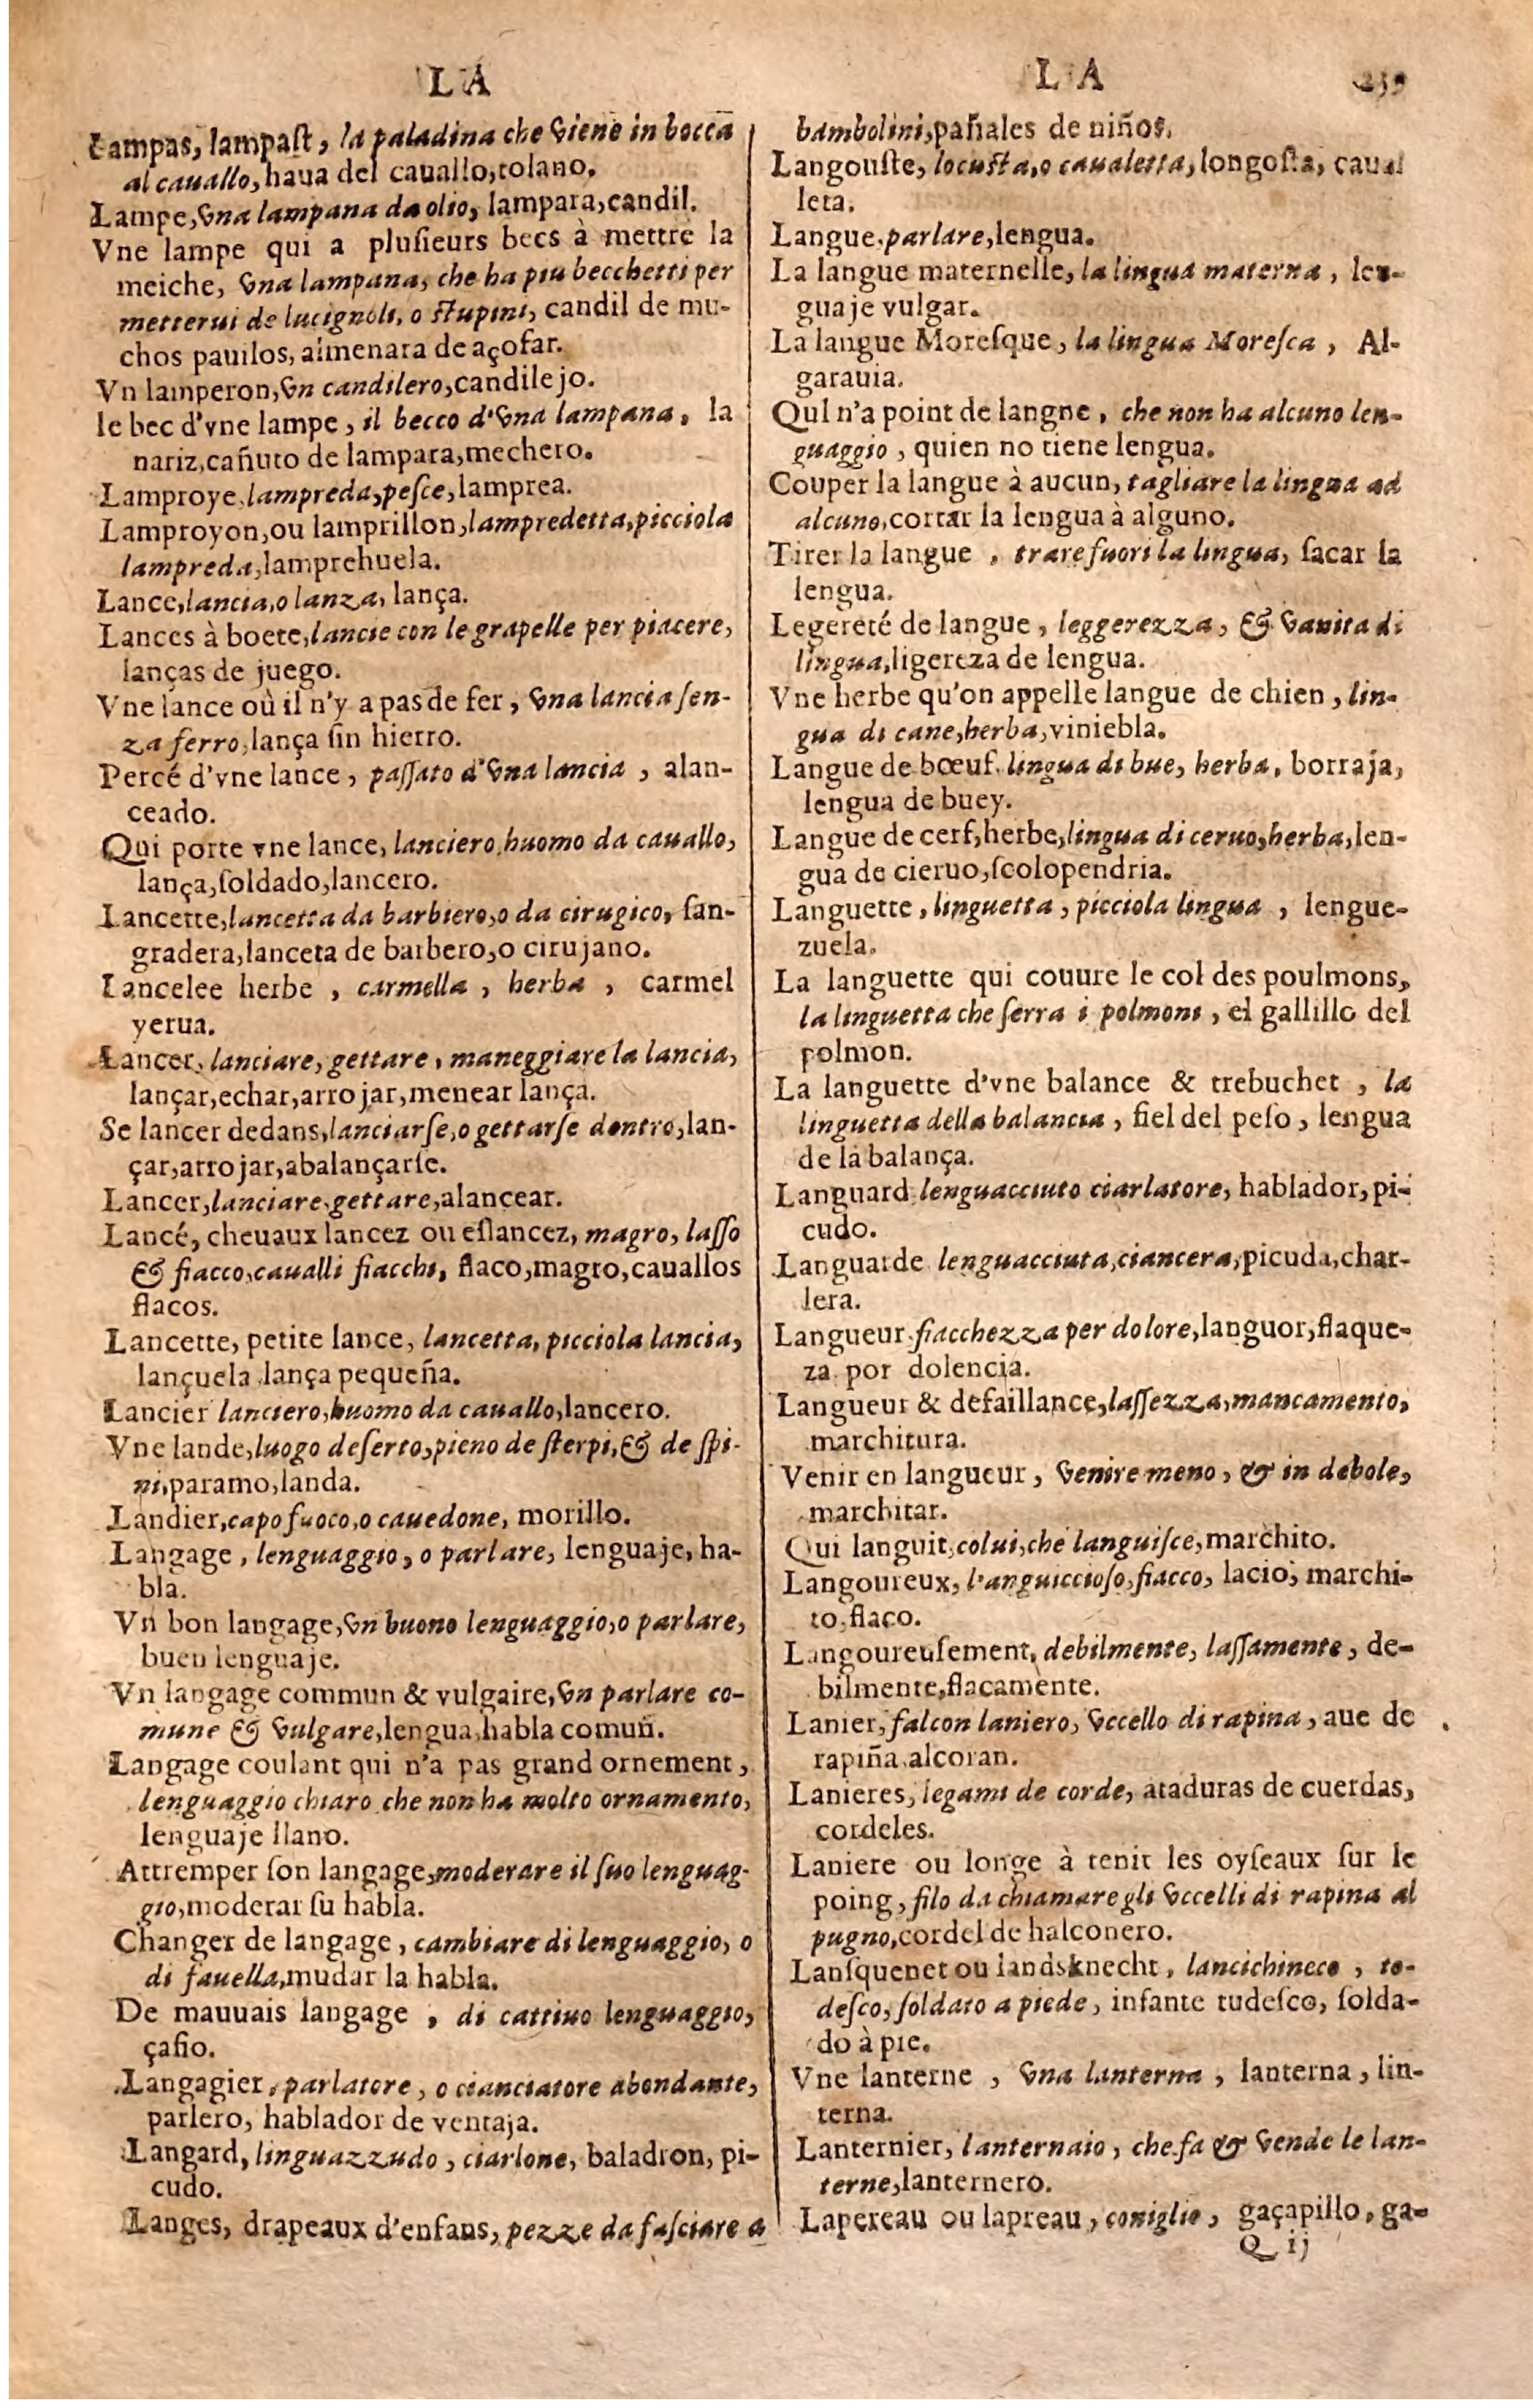 LA
Lampas, lampaſt, la paladina che viene in bocca
al cauallo, haua del cauallo, tolano.
Lampe, vna lampana da olio, lampara, candil.
Vne lampe qui a pluſieurs becs à mettre la
meiche, vna lampana, che ha piu becchetti per
metterui de lucignoli, o ſtupini, candil de mu-
chos pauilos, almenara de açofar.
Vn lamperon, vn candilero, candilejo.
le bec d'vne lampe, il becco d'vna lampana, la
nariz, cañuto de lampara, mechero.
Lamproye, lampreda, peſce, lamprea.
Lamproyon, ou lamprillon, lampredetta, picciola
lampreda, lamprehuela.
Lance, lancia, o lanza, lança.
Lances à boete, lancie con le grapelle per piacere,
lanças de juego.
Vne lance où il n'y a pas de fer, vna lancia ſen-
za ferro, lança ſin hierro.
Percé d'vne lance, paſſato d'vna lancia, alan-
ceado.
Qui porte vne lance, lanciero, huomo da cauallo,
lança, ſoldado, lancero.
Lancette, lancetta da barbiero, o da cirugico, ſan-
gradera, lanceta de barbero, o cirujano.
Lancelee herbe, carmella, herba, carmel
yerua.
Lancer, lanciare, gettare, maneggiare la lancia,
lançar, echar, arrojar, menear lança.
Se lancer dedans, lanciarſe, o gettarſe dentro, lan-
çar, arrojar, abalançarſe.
Lancer, lanciare, gettare, alancear.
Lancé, cheuaux lancez ou eſlancez, magro, laſſo
& fiacco, caualli fiacchi, flaco, magro, cauallos
flacos.
Lancette, petite lance, lancetta, picciola lancia,
lançuela lança pequeña.
Lancier lanciero, huomo da cauallo, lancero.
Vne lande, luogo deſerto, pieno de ſterpi, & de ſpi-
ni, paramo, landa.
Landier, capo fuoco, o cauedone, morillo.
Langage, lenguaggio, o parlare, lenguaje, ha-
bla.
Vn bon langage, vn buono lenguaggio, o parlare,
buen lenguaje.
Vn langage commun & vulgaire, vn parlare co-
mune & vulgare, lengua, habla comuñ.
Langage coulant qui n'a pas grand ornement,
lenguaggio chiaro che non ha molto ornamento,
lenguaje llano.
Attremper ſon langage, moderare il ſuo lenguag-
gio, moderar ſu habla.
Changer de langage, cambiare di lenguaggio, o
di fauella, mudar la habla.
De mauuais langage, di cattiuo lenguaggio,
çafio.
Langagier, parlatore, o cianciatore abondante,
parlero, hablador de ventaja.
Langard, linguazzudo, ciarlone, baladron, pi-
cudo.
Langes, drapeaux d'enfans, pezze da faſciare a
LA 239
bambolini, pañales de niños.
Langouſte, locuſta, o caualetta, longoſta, caual
leta.
Langue, parlare, lengua.
La langue maternelle, la lingua materna, len-
guaje vulgar.
La langue Moreſque, la lingua Moreſca, Al-
garauia.
Qul n'a point de langne, che non ha alcuno len-
guaggio, quien no tiene lengua.
Couper la langue à aucun, tagliare la lingna ad
alcuno, cortar la lengua à alguno.
Tirer la langue, trare fuori la lingua, ſacar la
lengua.
Legereté de langue, leggerezza, & vanita di
lingua, ligereza de lengua.
Vne herbe qu'on appelle langue de chien, lin-
gua di cane, herba, viniebla.
Langue de bœuf, lingua di bue, herba, borraja,
lengua de buey.
Langue de cerf, herbe, lingua di ceruo, herba, len-
gua de cieruo, ſcolopendria.
Languette, linguetta, picciola lingua, lengue-
zuela.
La languette qui couure le col des poulmons,
la linguetta che ſerra i polmoni, el gallillo del
polmon.
La languette d'vne balance & trebuchet, la
linguetta della balancia, fiel del peſo, lengua
de la balança.
Languard lenguacciuto ciarlatore, hablador, pi-
cudo.
Languarde lenguacciuta, ciancera, picuda, char-
lera.
Langueur, fiacchezza per dolore, languor, flaque-
za por dolencia.
Langueur & defaillance, laſſezza, mancamento,
marchitura.
Venir en langueur, venire meno, & in debole,
marchitar.
Qui languit, colui, che languiſce, marchito.
Langoureux, l'anguiccioſo, fiacco, lacio, marchi-
to, flaco.
Langoureuſement, debilmente, laſſamente, de-
bilmente, flacamente.
Lanier, falcon laniero, vccello di rapina, aue de
rapiña, alcoran.
Lanieres, legami de corde, ataduras de cuerdas,
cordeles.
Laniere ou longe à tenir les oyſeaux ſur le
poing, filo da chiamare gli vccelli di rapina al
pugno, cordel de halconero.
Lanſquenet ou landsknecht, lancichineco, to-
deſco, ſoldato a piede, infante tudeſco, ſolda-
do à pie.
Vne lanterne, vna lanterna, lanterna, lin-
terna.
Lanternier, lanternaio, che fa & vende le lan-
terne, lanternero.
Lapereau ou lapreau, coniglio, gaçapillo, ga-
Q ij